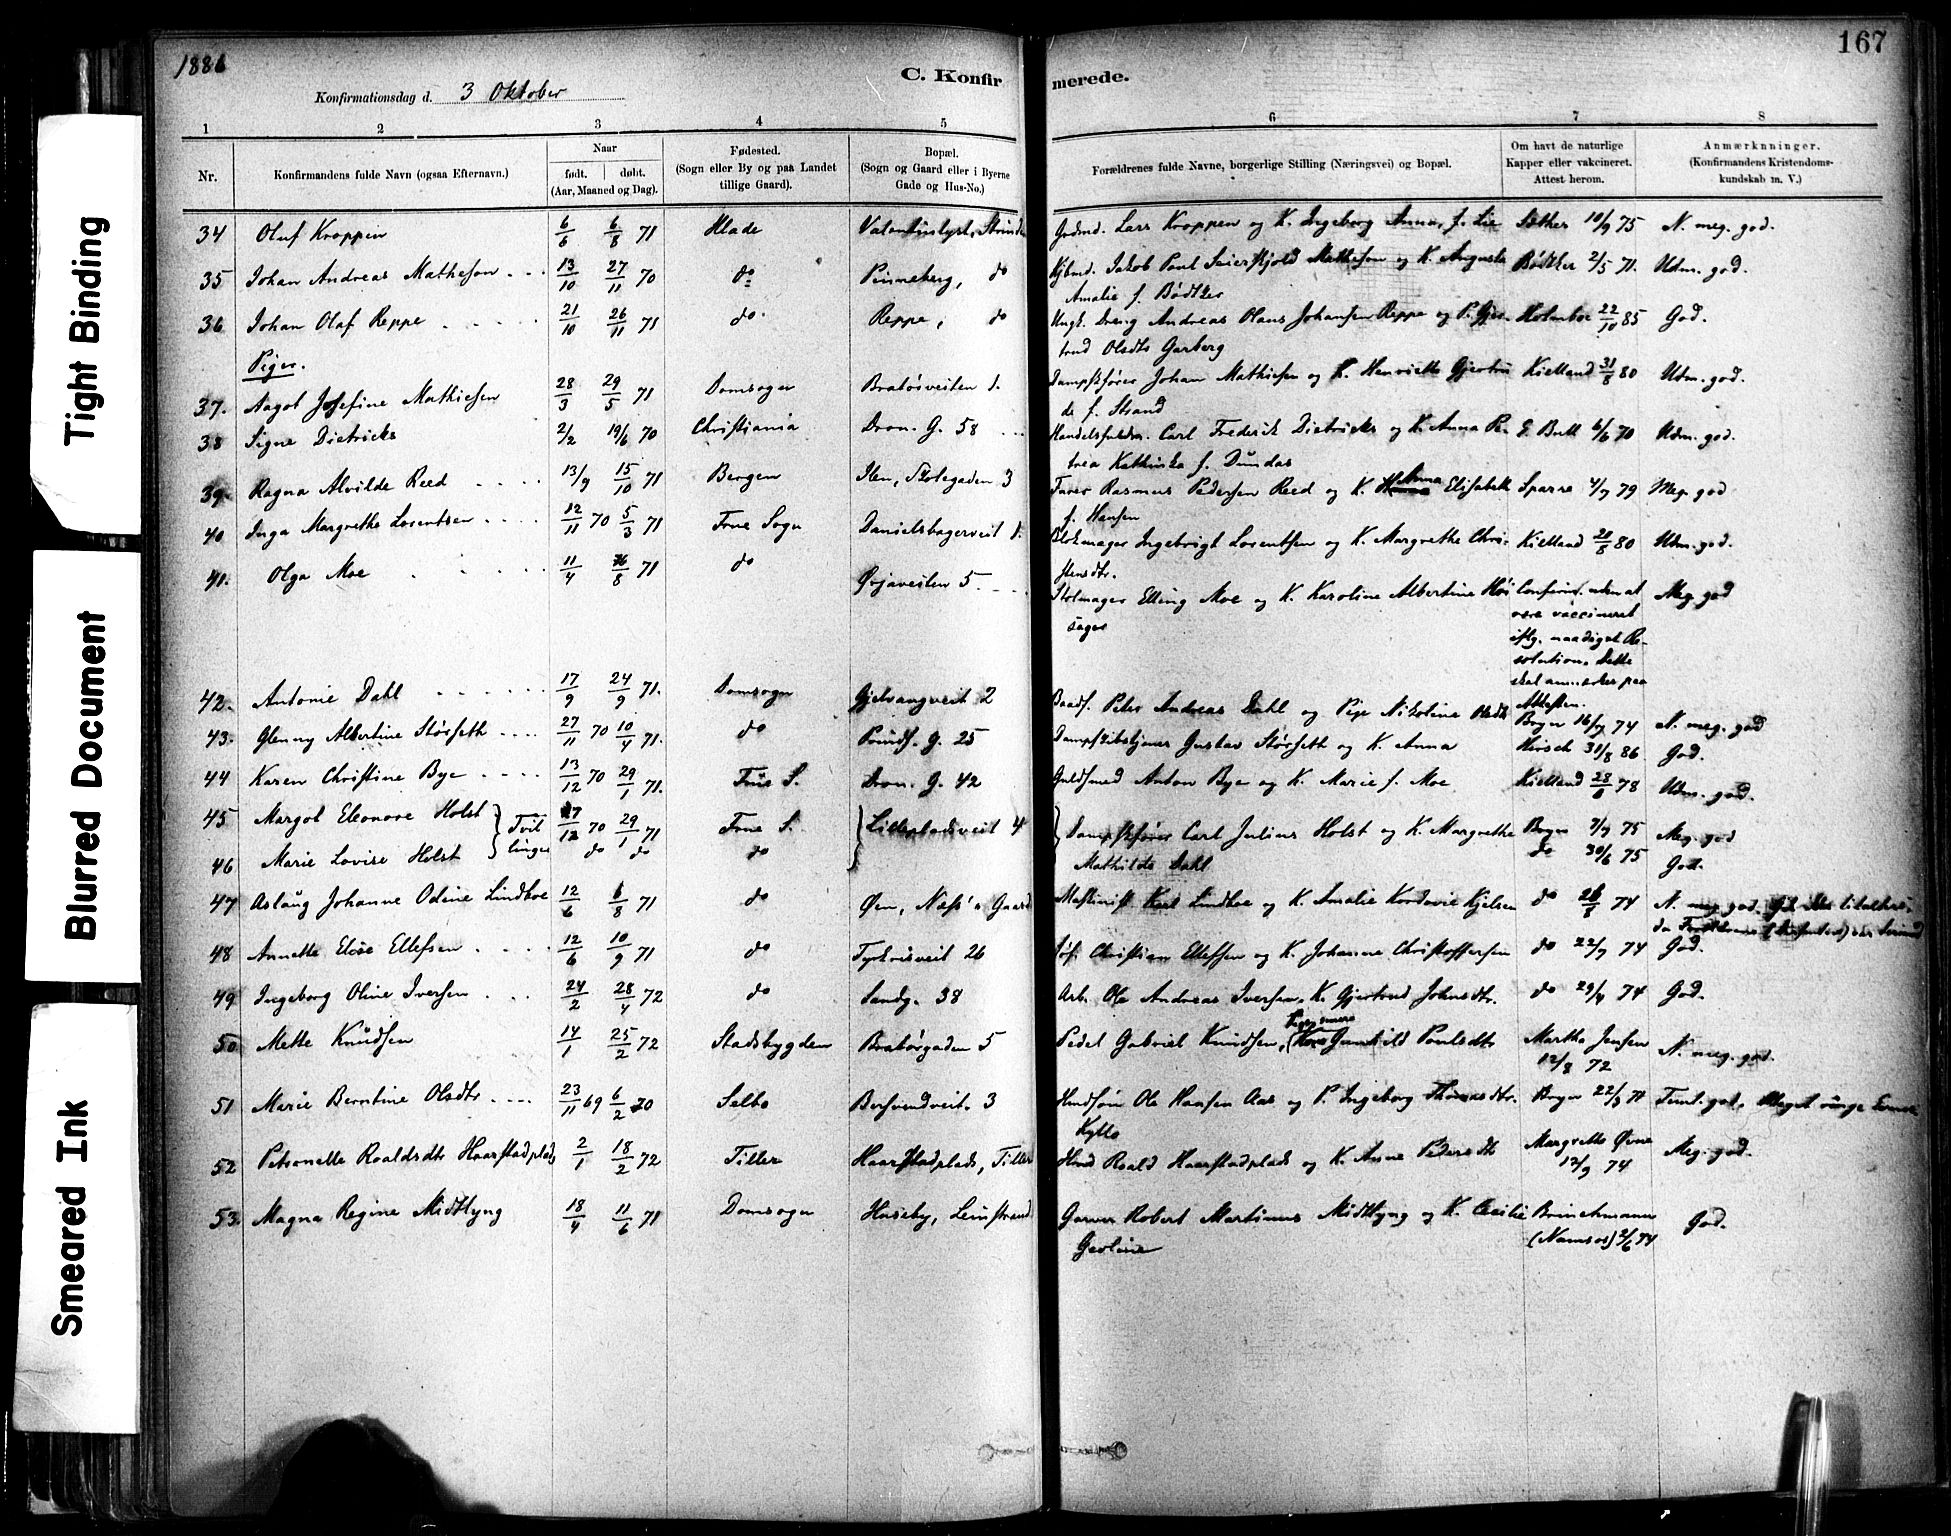 1886
167
C. Konfirmerede.
Konfirmationsdag d. 3 Oktober
1 2 3 4 5 6 7 8
Nr.
Konfirmandens fulde Navn (ogsaa Efternavn.)
Naar
født. døbt.
(Aar, Maaned og Dag).
Fødested.
(Sogn eller By og paa Landet
tillige Gaard).
Bopæl.
(Sogn og Gaard eller i Byerne
Gade og Hus-No.)
Forældrenes fulde Navne, borgerlige Stilling (Næringsvei) og Bopæl.
Om havt de naturlige
Kopper eller vakcineret.
Attest herom.
Anmærkninger.
(Konfirmandens Kristendoms-
kundskab m. V.)
34 Olaf Kroppen 6/6 6/8 71 Hlade Valentinlyst, Strinde Lars Kroppen og K. Ingeborg Anna, f. Lie Sæther 10/9 75 N. meg. god.
35 Johan Andreas Mathesen 13/10 27/11 70 do Pinneberg, do Jakob Paul Seierskjold Mathesen og K. Augusta Bødtker 2/5 71. Udm. god.
Amalie f. Bødtker
36 Johan Olaf Reppe 21/10 26/11 71 do Reppe, do Ungk. Dreng Andreas Olaus Johansen Reppe og P. Gjer- Holmboe 22/10 85 God.
trud Olsdtr Garberg
Piger.
37. Aagot Josefine Mathiesen 28/3 29/5 71 Domsogn Bratørveiten 1. Dampskfører Johan Mathiesen og K. Henriette Gjertru Kielland 31/8 80 Udm. god.
de f. Strand
38 Signe Dietrichs 2/2 19/6 70 Christiania Dron. G. 58 Carl Frederik Dietrichs og K. Anna Pe- E. Bull 6/6 70 Udm. god.
trea Kathinka f. Dundas
39. Ragna Alvilde Reed 13/9 15/10 71 Bergen Ilen, Skolegaden 3 Rasmus Pedersen Reed og K. Anna Elisabeth Sparre 4/7 79 Meg. god
f. Hansen
40 Inga Margrethe Lorentsen 12/11 70 5/3 71 Frue Sogn Danielsbagerveit 1. Blokmager Ingebrigt Lorentsen og K. Margrethe Chri- Kielland 20/8 80 Udm. god.
stensdtr.
41. Olga Moe 11/4 /8 71 do Ørjaveiten 5 Stolmager Elling Moe og K. Karoline Albertine Høi Confirm. uden at Meg. god
sager
være vaccineret
iflg. naadigst Re-
solution. Dette
skal anmerkes paa
Attesten.
42. Antonie Dahl 17/9 24/9 71. Domsogn Gjelvangveit 2 Baadf. Peter Andreas Dahl og Pige Nikoline Olsdtr Boyer 16/7 74 N. meg. god
43. Glenny Albertine Størseth 27/11 70 10/4 71. do Prinds. G. 25 Gustav Størseth og K. Anna Hirsch 31/8 86 God.
44 Karen Christine Bye 13/12 70 29/1 71. Frue S. Dron. G. 42 Guldsmed Anton Bye og K. Marie f. Moe Kielland 28/6 78 Udm. god.
45 Margot Eleonore Holst } Tvil 27/12 70 29/1 71 Frue S. Lilletorvsveit 4 Dampskfører Carl Julius Holst og K. Margrethe Boyer 7/7 75 Meg. god
46 Marie Lovise Holst } linger do do do Mathilde Dahl do 30/6 75 God.
47 Aslaug Johanne Odine Lindboe 12/6 6/8 71 do Øen, Næss's Gaard Maskinist Karl Lindboe og K. Amalie Kordovie Kjelsen do 26/8 74 N. meg. god.
48 Annette Elise Ellefsen 12/6 10/9 71 do Tyrkrisveit 26 Christian Ellefsen og K. Johanne Christoffersen do 22/7 74 God.
49 Ingeborg Oline Iversen 24/2 28/4 72 do Sandg. 38 Arb. Ole Andreas Iversen, K. Gjertrud Johnsdtr. do 29/4 74 God.
50 Mette Knudsen 14/1 25/2 72 Stadsbygden Bratørgaden 5 Pedel Gabriel Knudsen, Gunhild Poulsdtr Martha Jensen N. meg. god.
12/8 72
51 Marie Berntine Olsdtr 23/11 69 6/2 70 Selbo 3 Ole Hansen Aas og P. Ingeborg Thomasdtr. Boyer 22/8 71 Teml. god.
Kyllo
52 Petronelle Roaldsdtr Haarstadplads 2/1 18/2 72 Tiller Haarstadplads, Tiller Hmd Roald Haarstadplads og K. Anne Pedersdtr Margrethe Øvne Meg. god.
12/9 74
53. Magna Regine Midtlyng 18/4 11/6 71 Domsogn Huseby, Leinstrand Garver Robert Martinus Midtlyng og K. Cecilie Brinchmann God.
Gesline
(Namsos) 2/6 74
Tight Binding
Blurred Document
Smeared Ink